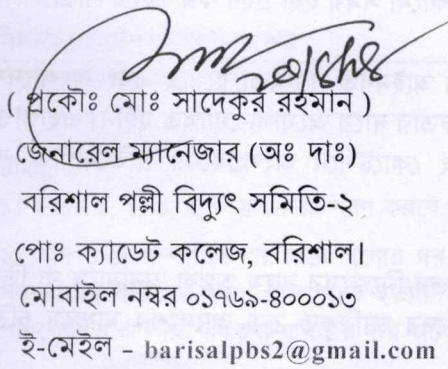 ( প্রকৌঃ মোঃ সাদেকুর রহমান )
জেনারেল ম্যানেজার (অঃ দাঃ)
বরিশাল পল্লী বিদ্যুৎ সমিতি-২
পোঃ ক্যাডেট কলেজ, বরিশাল।
মোবাইল নম্বর ০১৭৬৯-৪০০০১৩
ই-মেইল – barisalpbs2@gmail.com